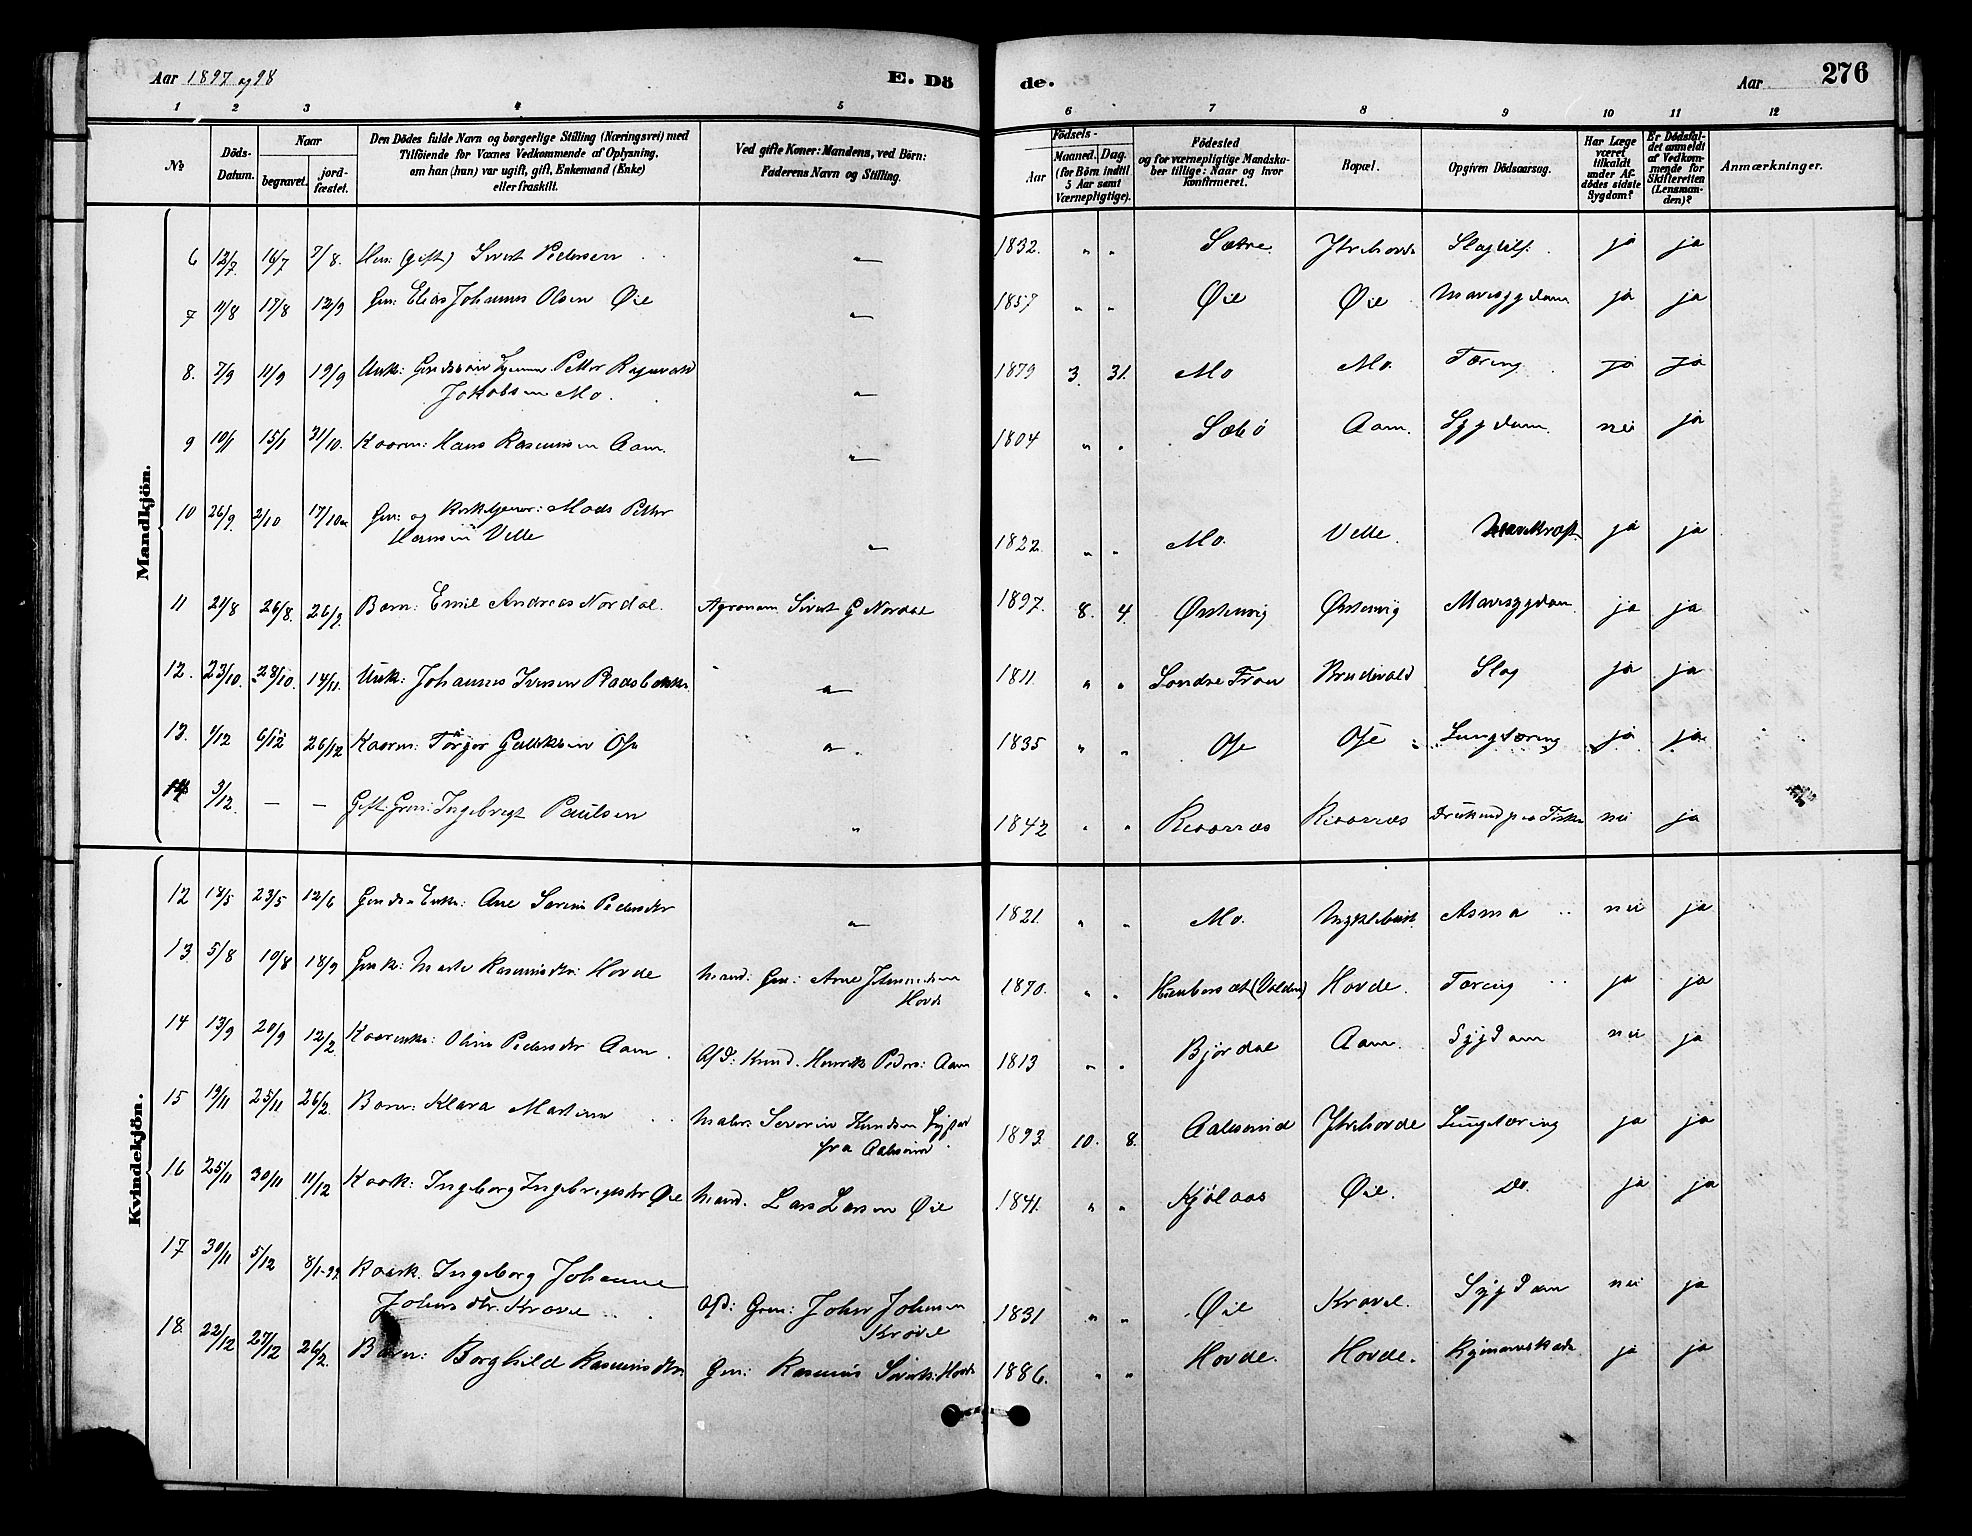 Aar 1897 og 98 E. Dö
de. Aar 276
1 2 3 4 5 6 7 8 9 10 11 12
No
Döds-
Datum.
Naar
begravet.
jord-
fæstet.
Den Dödes fulde Navn og borgerlige Stilling (Næringsvei) med
Tilföiende for Voxnes Vedkommende af Oplysning,
om han (hun) var ugift, gift, Enkemand (Enke)
eller fraskilt.
Ved gifte Koner: Mandens, ved Börn:
Faderens Navn og Stilling.
Födsels-
Aar
Maaned. Dag.
(for Börn indtil
5 Aar samt
Værnepligtige).
Födested
og for værnepligtige Mandska-
ber tillige: Naar og hvor
konfirmeret.
Bopæl.
Opgiven Dödsaarsag.
Har Læge
været
tilkaldt
under Af-
dödes sidste
Sygdom?
Er Dödsfal-
det anmeldt
af Vedkom-
mende for
Skifteretten
(Lensman-
den)?
Anmærkninger.
Mandkjön.
6 12/7. 16/7 7/8. (gift) Sivert Pedersen " 1832. " " Sætre Ytrehovde ja ja
7 11/8 17/8 12/9 Gm: Elias Johannes Olsen Øie " 1857 " " Øie Øie Mavesygdom ja ja
8. 7/9 11/9 19/9 Petter
Jakobsen Mo. " 1879 3. 31. Mo Mo. Tæring ja ja
9 10/1 15/1 31/10. Kaarm: Hans Rasmussen Aam. " 1804 " " Sæbö Aam. Sygdom nei ja
10 26/9. 2/10 17/10 Gm: og Kirketjener: Mads Petter
Hansen Velle " 1822. " " Mo. Velle. ja ja
11 21/8 26/8. 26/9. Barn: Emil Andreas Nordal. Agronom Sivert G Nordal 1897. 8. 4. Ørstenvig Ørstenvig Mavesygdom ja ja
12. 23/10. 28/10. 14/11. Johannes Iversen " 1811. " " Søndre Fron Brudevold Slag ja ja
13. 1/12 6/12 26/12 Kaarm: Ose " 1835 " " Ose Ose Lungetæring ja ja
14 3/12. — — Gift Gm: Ingebrigt Paulsen " 1842 " " nei ja
Kvindekjön.
12 18/5 23/5 12/6 Ane Pedersdtr " 1821. " " Mo. Myklebust Asma nei ja
13. 5/8 10/8 18/9 Gmk: Marte Rasmusdtr: Hovde Mand: Gm: Arne
Hovde 1870. " " (Volden) Hovde. Tæring ja ja
14 13/9 20/9 12/2. Oline Pedersdtr Aam. Afd: Knud Henrik Peders: Aam 1813 " " Bjørdal Aam. Sygdom nei ja
15 19/11 25/11 26/2. Barn: Klara Martine Maler: Severin Knudsen
fra Aalesund 1893. 10. 8. Aalesund Ytrehovde Lungetæring ja ja
16 25/11 30/11 11/12 Kaark: Ingeborg Ingebrigtsdtr Øie Mand. Lars Larsen Øie 1841. " " Kjølaas Øie. Do. ja ja
17 30/11 5/12 8/1-99. Kaark. Ingeborg Johanne
Johnsdtr. Krøvel Afd: Gm: John Johnsen
Krøvel 1831 " " Øie Krøvel. Sygdom nei ja
18. 22/12 27/12 26/2. Barn: Borghild Rasmusdtr. Gm: Rasmus Siverts: Hovde 1886. " " Hovde. Hovde. ja ja